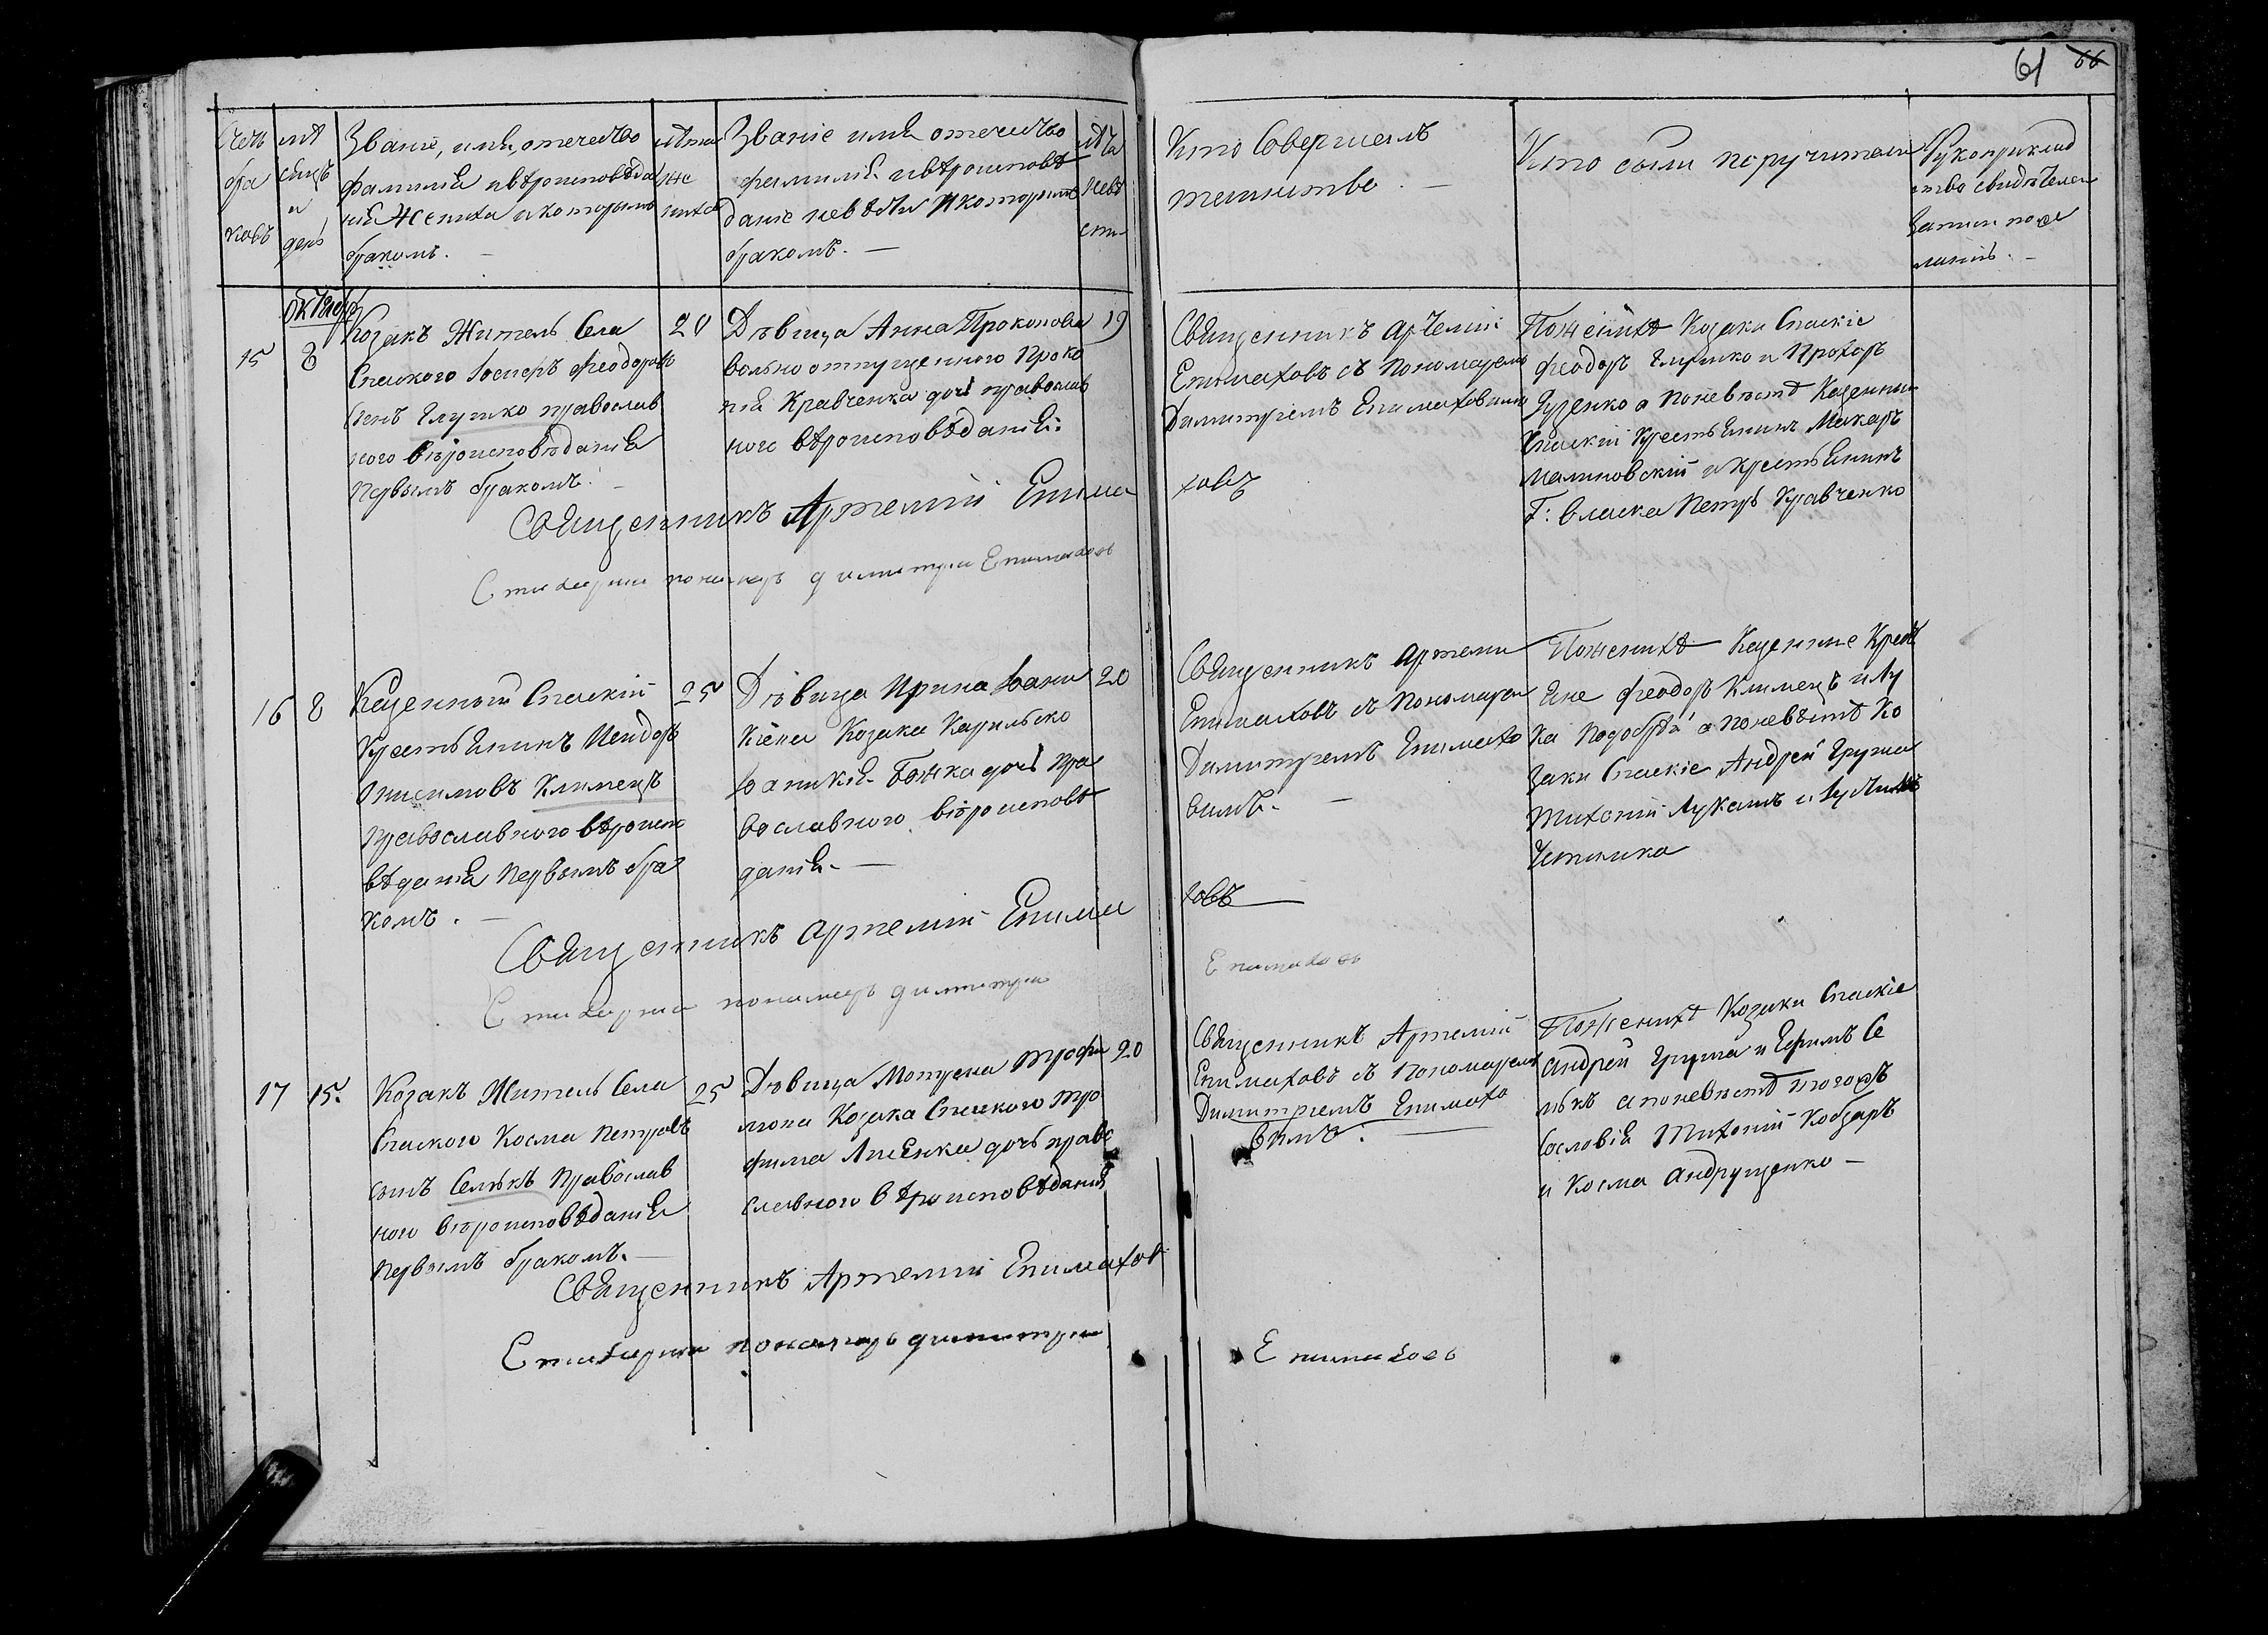 61 66
Счетъ браковъ
мѣсяцъ и день
Званіе, имя, отечество
фамилія и вѣроисповѣда
нія Жениха и которымъ
бракомъ. —
лѣта же
ниха
Званіе имя отечество
фамилія и вѣроисповѣ
даніе невѣсты и которымъ
бракомъ. —
лѣта
невѣ
сты
Кто Совершалъ
таинство. —
Кто были поручители
Рукоприклад
ство свидѣтелей
записи по же
ланію. —
октябр
15
8
Козакъ Житель Села
Спаского Іосифъ Феодоровъ
сынъ Глушко православ
ного вѣроисповѣданія
Первымъ бракомъ. —
20
Дѣвица Анна Прокопова
вольноотпущенного Проко
пія Кравченка дочь православ
ного вѣроисповѣданія.
19
Священникъ Артемій
Епимаховъ съ Пономаремъ
Димитріемъ Епимаховымъ
По женихѣ Козаки Спаскіе
Феодоръ Глушко и Прохоръ
а по невѣстѣ Казенный
Спаскій Крестьянинъ Макаръ
Малиновскій и Крестьянинъ
Петръ Кравченко
Священникъ Артемій Епима
ховъ
Стихарни пономарь димитрии Епимаховъ
16
8
Казенный Спаскій
Крестьянинъ
Онисимовъ Клименъ
Православного вѣроиспо
вѣданія Первымъ бра
комъ. —
25
Дѣвица Ирина Іоани
кіева Козака
Іоаникія Божка дочь Пра
вославного вѣроисповѣ
данія. —
20
Священникъ Артеми
Епимаховъ съ Пономарем
Димитріемъ Епимахо
вымъ. —
По женихѣ Казенние Крестья
яне Феодоръ Клименъ и Лу
ка а по невѣстѣ Ко
заки Спаскіе Андрей Груша
Тихоній Лукашъ и
Священникъ Артемій Епима
ховъ
Стихарни пономарь димитри
Епимаховъ
17
15.
Козакъ Житель Села
Спаского Косма Петровъ
сынъ Селюкъ Православ
ного вѣроисповѣданія
Первымъ бракомъ. —
25
Дѣвица Мотрона Трофи
мова Козака Спаского Тро
фима дочь право
славного вѣроисповѣданія
20
Священникъ Артемій
Епимаховъ съ Пономаремъ
Димитріемъ Епимахо
вымъ. —
По женихѣ Козаки Спаскіе
Андрей Груша и Ефимъ Се
люкъ а по невѣстѣ того жъ
сословія Тихоній Кобзаръ
и Косма Андрущенко —
Священникъ Артемій Епимахов
Стихарни пономарь димитри
Епимаховъ